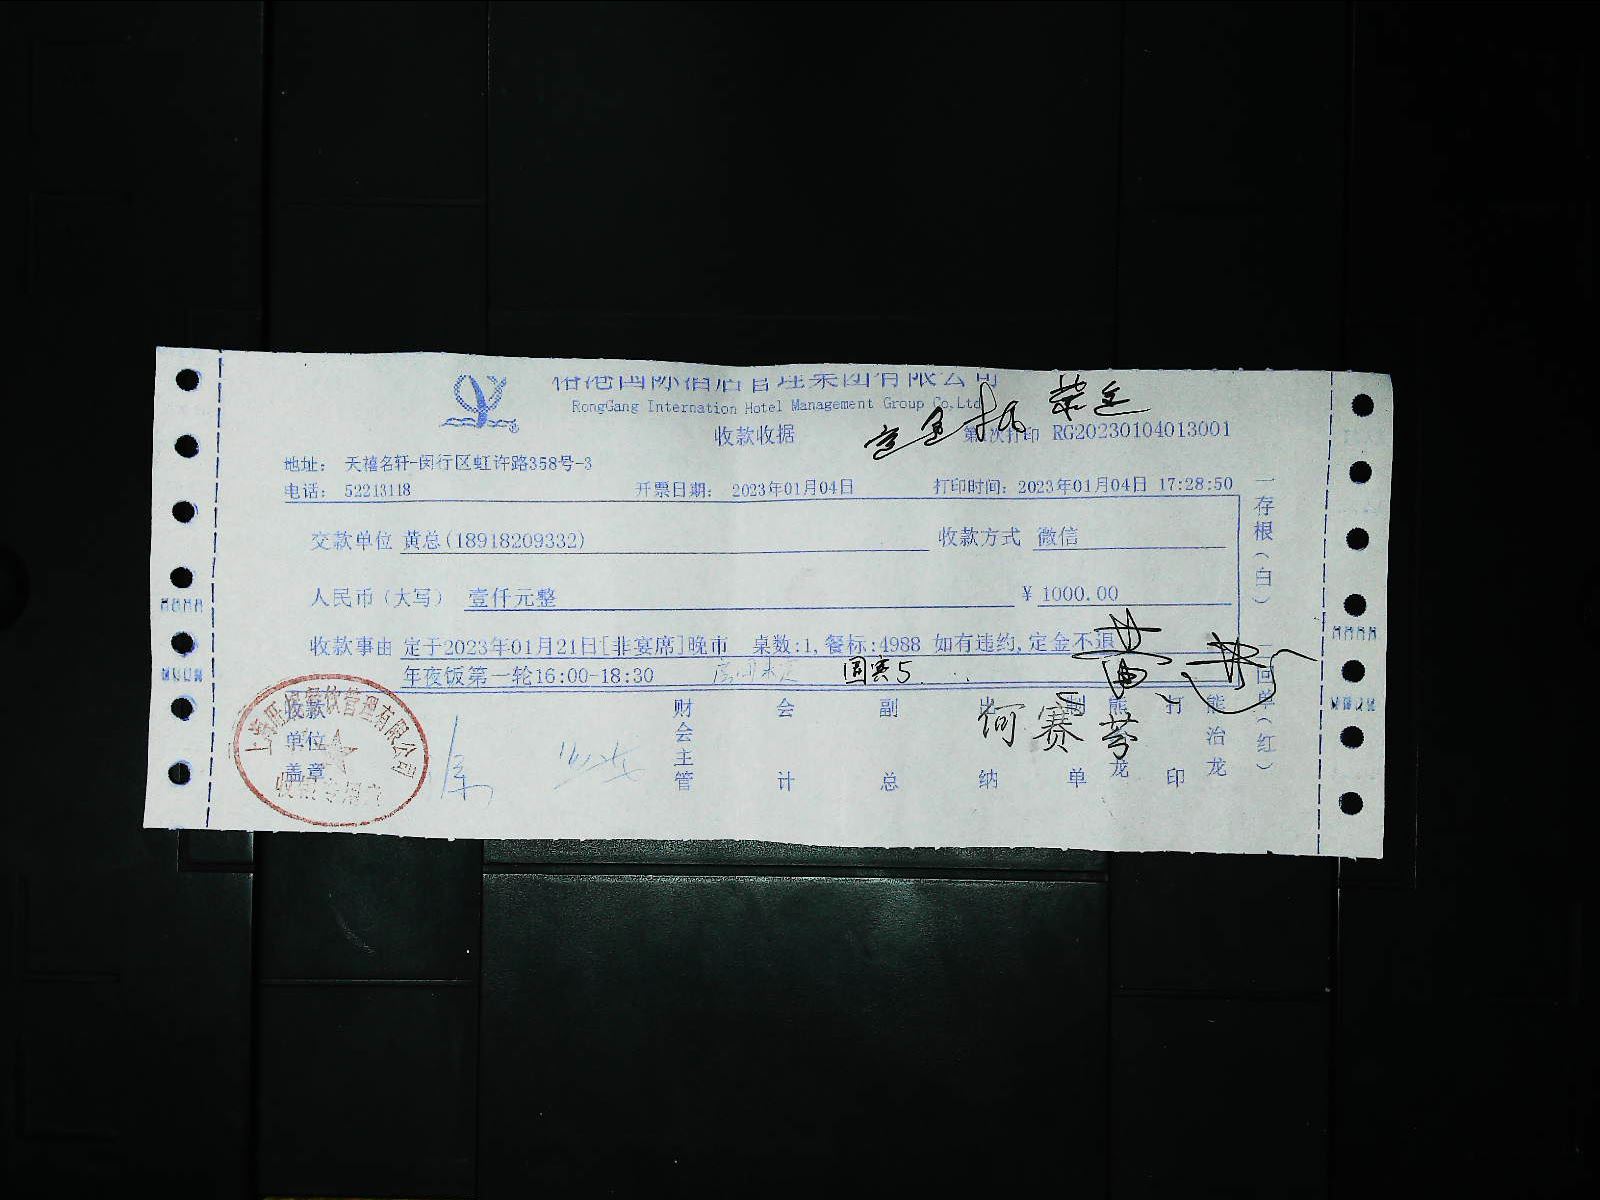 国际酒店管理集团有限公司
RongGang Internation Hotel Management Group Co.Ltd
收款收据 次打印 RG20230104013001
定金抵
地址: 天禧名轩-闵行区虹许路358号-3
电话: 52213118 开票日期: 2023年01月04日 打印时间: 2023年01月04日 17:28:50
交款单位 黄总(18918209332) 收款方式 微信
人民币(大写) 壹仟元整 ¥ 1000.00
收款事由 定于2023年01月21日[非宴席]晚市 桌数:1,餐标:4988 如有违约,定金不退
年夜饭第一轮16:00-18:30 国宾5
何赛芬
收款单位盖章 财会主管 会计 副总 出纳 制单 熊治龙 打印 熊治龙
一存根(白) 二回单(红)